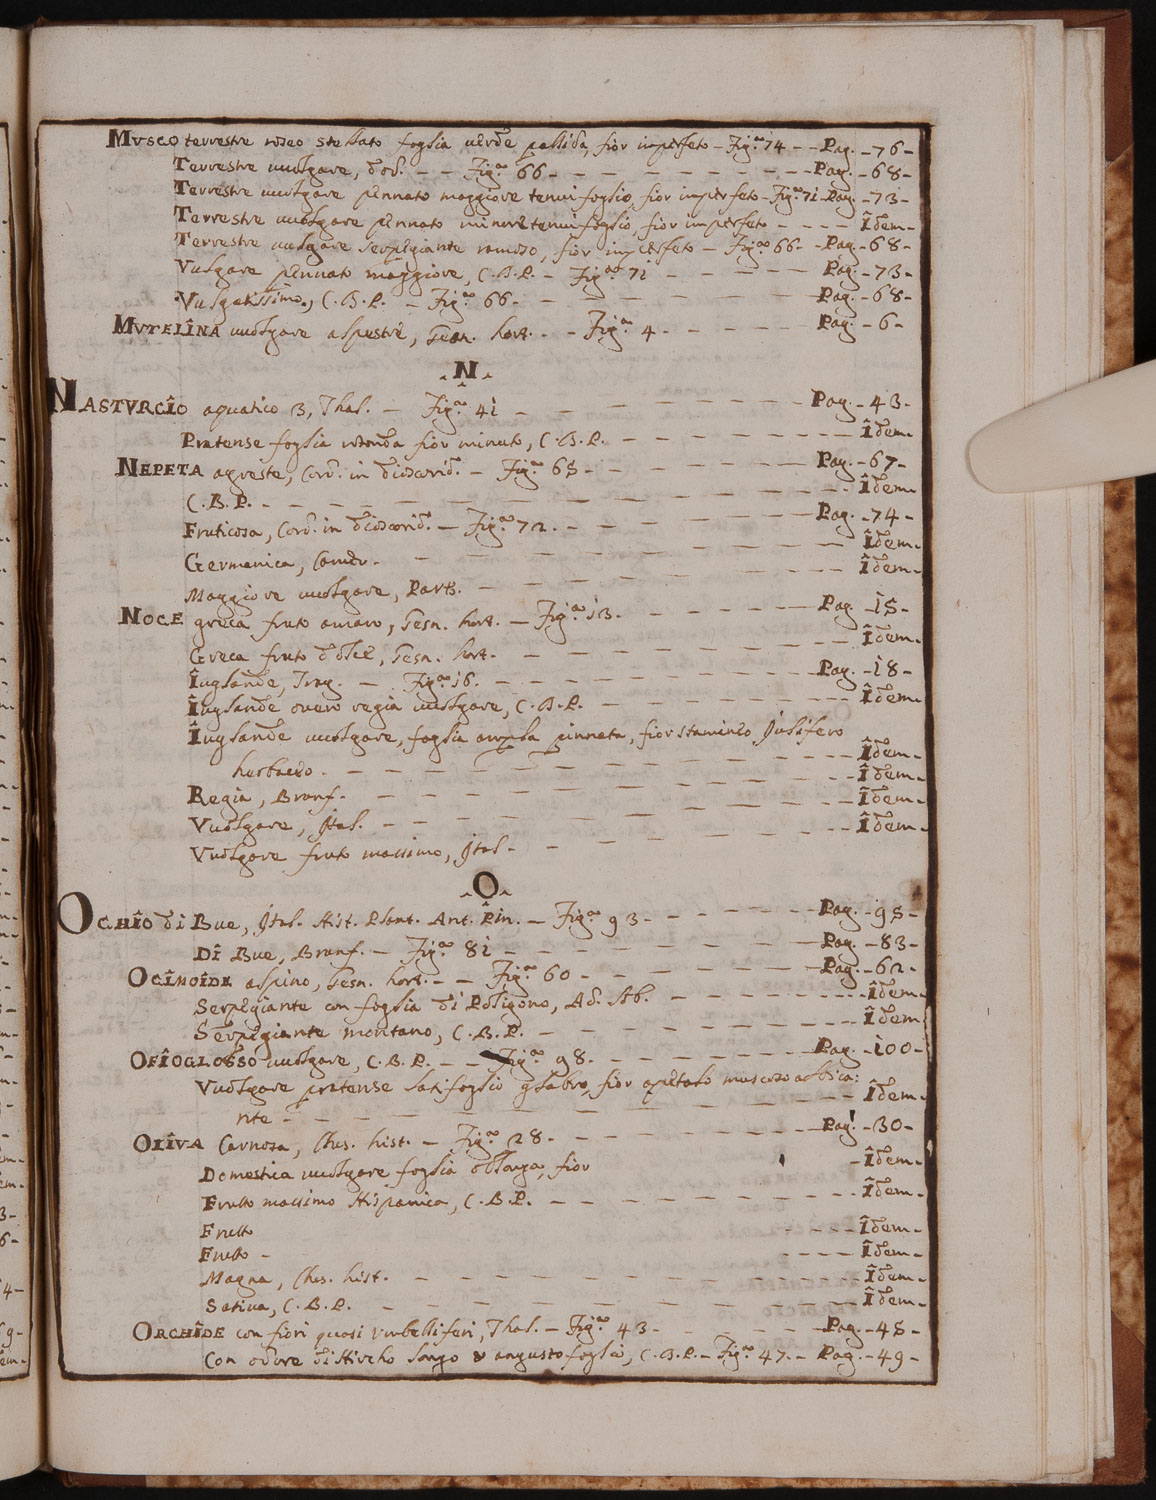 MVSCO terrestre roseo stellato foglia uerde pallida, fior imperfeto - Fig.ª 74 - - Pag. - 76 -
Terrestre uuolgare, Dod. - - Fig.ª 66 - - - - - - - - - - Pag. - 68 -
Terrestre uuolgare pennato maggiore tenui foglio, fior imperfeto - Fig.ª 71 - Pag. - 73 -
Terrestre uuolgare pennato minore tenui foglio, fior imperfeto - - - - Îdem -
Terrestre uulgare serpegiante ramoso, fior imperfeto - Fig.ª 66 - - Pag. - 68 -
Vulgare pennato maggiore, C.B.P. - Fig.ª 71 - - - - - Pag. - 73 -
Vulgatissimo, C.B.P. - Fig.ª 66 - - - - - - - - Pag. - 68 -
MVTELÎNA uuolgare alpestre, Gesn. hort. - - Fig.ª 4 - - - - - Pag. - 6 -
N
NASTVRCÎO aquatico 3, Thal. - Fig.ª 41 - - - - - - - - Pag. - 43 -
Pratense foglia rotonda fior minuto, C.B.P. - - - - - - - Îdem -
NEPETA agreste, Cord. in dioscorid. - Fig.ª 65 - - - - - - Pag. - 67 -
C.B.P. - - - - - - - - - - - - - - - Îdem -
Fruticosa, Cord. in dioscorid. - Fig.ª 72 - - - - - - - Pag. - 74 -
Germanica, Camer. - - - - - - - - - - - - - Îdem -
Maggiore uuolgare, Park. - - - - - - - - - - - Îdem -
NOCE greca fruto amaro, Gesn. hort. - Fig.ª 13 - - - - - - Pag. - 15 -
Greca fruto dolce, Gesn. hort. - - - - - - - - - Îdem -
Îuglande, Trag. - Fig.ª 16 - - - - - - - - - Pag. - 18 -
Îuglande ouero regia uuolgare, C.B.P. - - - - - - - - Îdem -
Îuglande uuolgare, foglia ampla pinnata, fior stamineo Julifero
herbaceo - - - - - - - - - - - - - - Îdem -
Regia, Brunf. - - - - - - - - - - - - - Îdem -
Vuolgare, Ital. - - - - - - - - - - - - - Îdem -
Vuolgare fruto massimo, Ital - - - - - - - - - - Îdem -
O
OCHÎO di Bue, Ital. Hist. Plant. Ant. Pin. - Fig.ª 93 - - - - - Pag. - 95 -
DÎ Bue, Brunf. - Fig.ª 81 - - - - - - - - - Pag. - 83 -
OCÎMOÎDE alpino, Gesn. hort. - - Fig.ª 60 - - - - - - - Pag. - 62 -
Serpegiante con foglia di Poligono, Ad. Lob. - - - - - - Îdem -
Serpegiante montano, C.B.P. - - - - - - - - - - Îdem
OFÎOGLOSSO uuolgare, C.B.P. - - Fig.ª 98 - - - - - - - Pag. - 100 -
Vuolgare pratense latifoglio glabro, fior apetalo muscoso albica:
nte - - - - - - - - - - - - - - - Îdem -
OLÎVA Carnosa, Clus. hist. - Fig.ª 28 - - - - - - - - Pag. - 30 -
Domestica uuolgare foglia oblonga, fior - Îdem -
Frutto massimo Hispanica, C.B.P. - - - - - - - - - Îdem -
Frutto - - - - Îdem -
Frutto - - - - - Îdem -
Magna, Clus. hist. - - - - - - - - - - - - Îdem -
Satiua, C.B.P. - - - - - - - - - - - - - Îdem -
ORCHÎDE con fiori quasi vmbelliferi, Thal. - Fig.ª 43 - - - - - Pag. - 45 -
Con odore di Hircho longo & angusto foglio, C.B.P. - Fig.ª 47 - - Pag. - 49 -